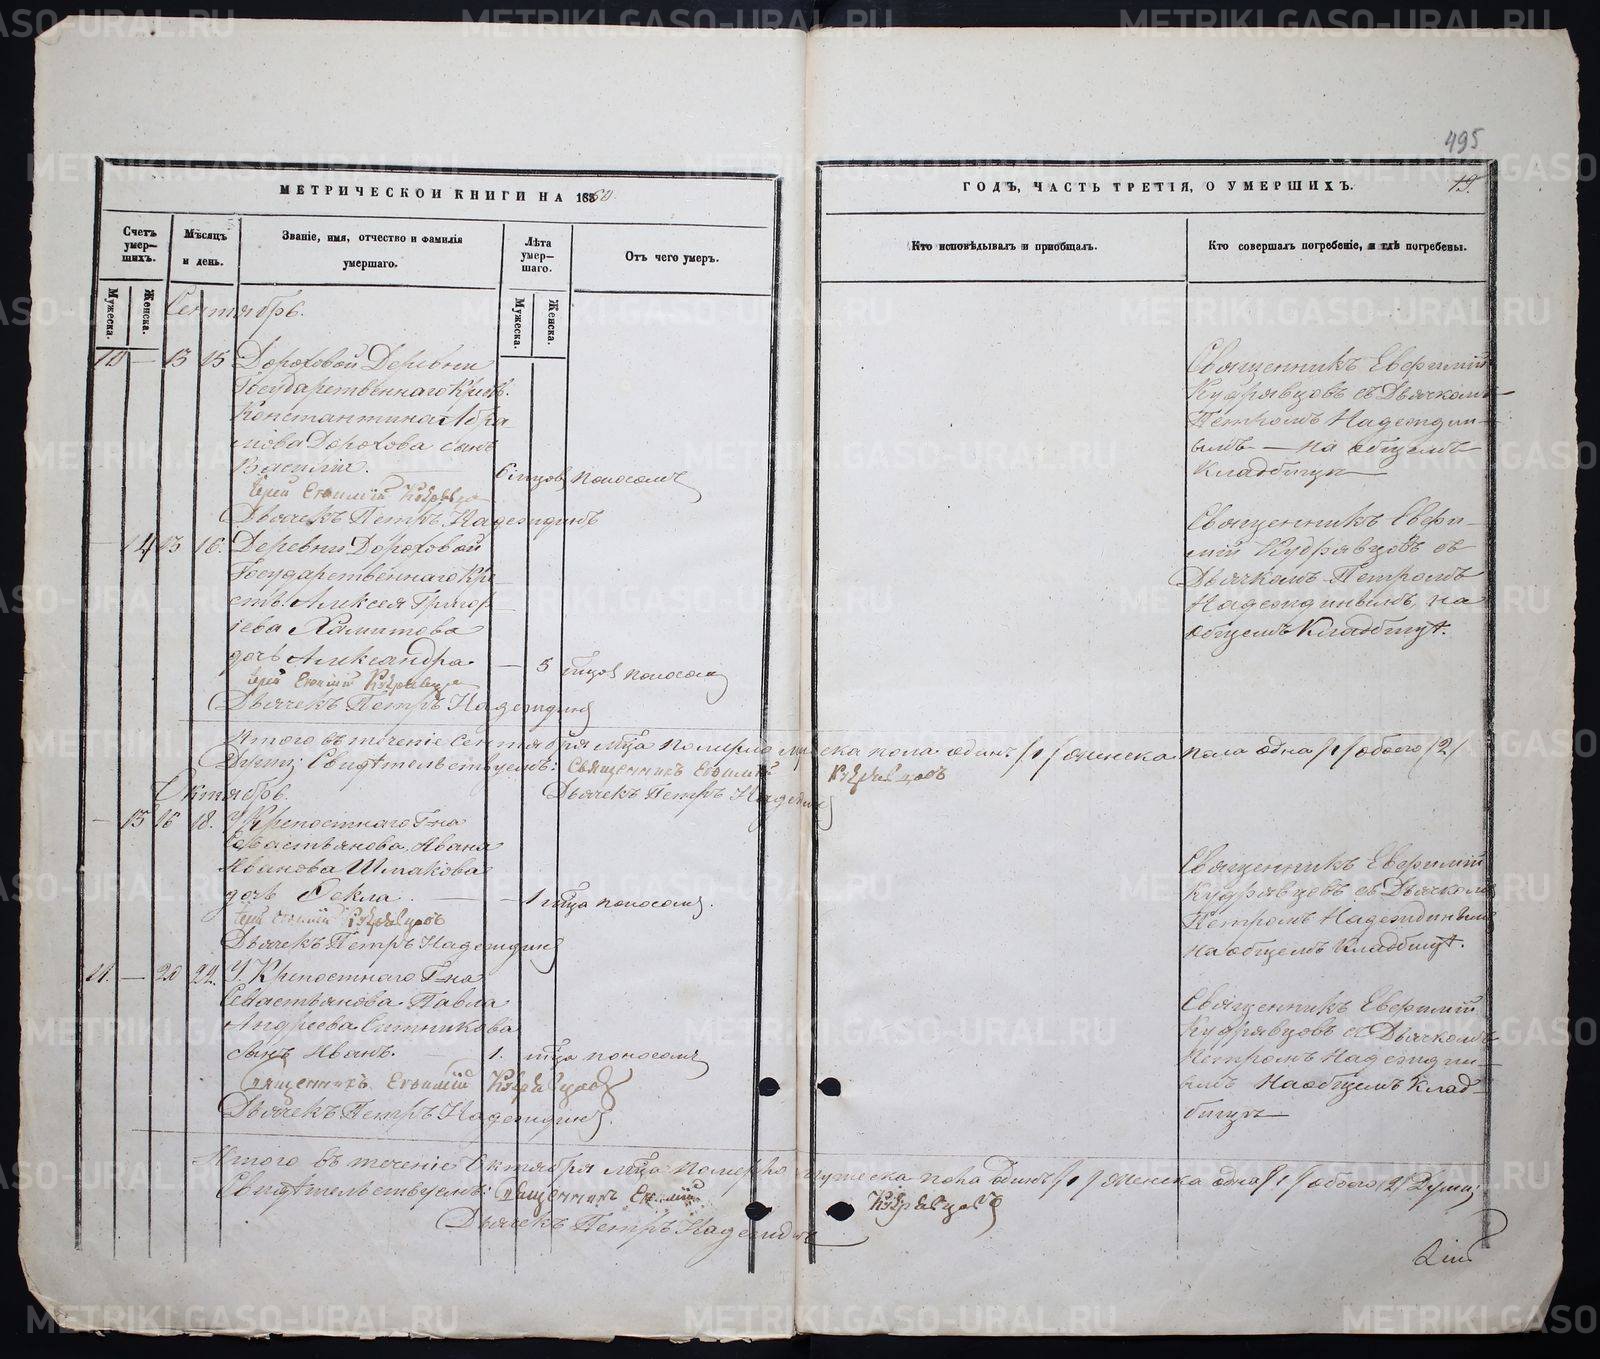 495
МЕТРИЧЕСКОЙ КНИГИ НА 18560.
ГОДЪ, ЧАСТЬ ТРЕТІЯ, О УМЕРШИХЪ.
19.
Счетъ умер-
шихъ.
Мѣсяцъ
и день.
Званіе, имя, отчество и фамилія
умершаго.
Лѣта
умер-
шаго.
Отъ чего умеръ.
Кто исповѣдывалъ и приобщалъ.
Кто совершалъ погребеніе, и гдѣ погребены.
Мужеска.
Женска.
Мужеска.
Женска.
Сентябрь.
10 — 13 15 Дороховой Деревни
Государственнаго Крест.
Константина Абра-
мова Дорохова сынъ
Василій. 6 мцовъ поносомъ
Іерей Евфимій Кудрявцовъ
Дьячекъ Петръ Надеждинъ
Священникъ Евфимій
Кудрявцовъ съ Дьячкомъ
Петромъ Надежди-
нымъ — на общемъ
Кладбищѣ
— 14 13 16. Деревни Дороховой
Государственнаго Кре-
ст. Алексея Григор-
іева Хамитова
дочь Александра — 5 мцовъ поносомъ
Іерей Евфимій Кудрявцовъ
Дьячекъ Петръ Надеждинъ
Священникъ Евфи-
мій Кудрявцовъ съ
Дьячкомъ Петромъ
Надеждинымъ, на
общемъ Кладбищѣ.
Итого въ теченіе Сентября мѣца померло мужеска пола одинъ /1/ женска пола одна /1/ обоего /2/
Души; Свидѣтельствуемъ: Священникъ Евфимій Кудрявцовъ
Дьячекъ Петръ Надеждинъ
Октябрь.
— 15 16 18. У Крепостнаго Г-на
Севастьянова, Ивана
Иванова Шмакова
дочь Фекла. — 1 мца поносомъ.
Іерей Евфимій Кудрявцовъ
Дьячекъ Петръ Надеждинъ
Священникъ Евфимій
Кудрявцовъ съ Дьячкомъ
Петромъ Надеждинымъ
на общемъ Кладбищѣ.
11. — 20 22. У Крепостнаго Г-на
Севастьянова Павла
Андреева Ситникова
сынъ Иванъ. — 1. мца поносомъ
Священникъ Евфимій Кудрявцовъ
Дьячекъ Петръ Надеждинъ.
Священникъ Евфимій
Кудрявцовъ съ Дьячкомъ
Петромъ Надежди-
нымъ на общемъ Клад-
бищѣ
Итого въ теченіе Октября мѣца померло мужеска пола одинъ /1/ женска одна /1/ обоего /2/ Души;
Свидѣтельствуемъ: Священникъ Евфимій Кудрявцовъ
Дьячекъ Петръ Надеждинъ
METRIKI.GASO-URAL.RU